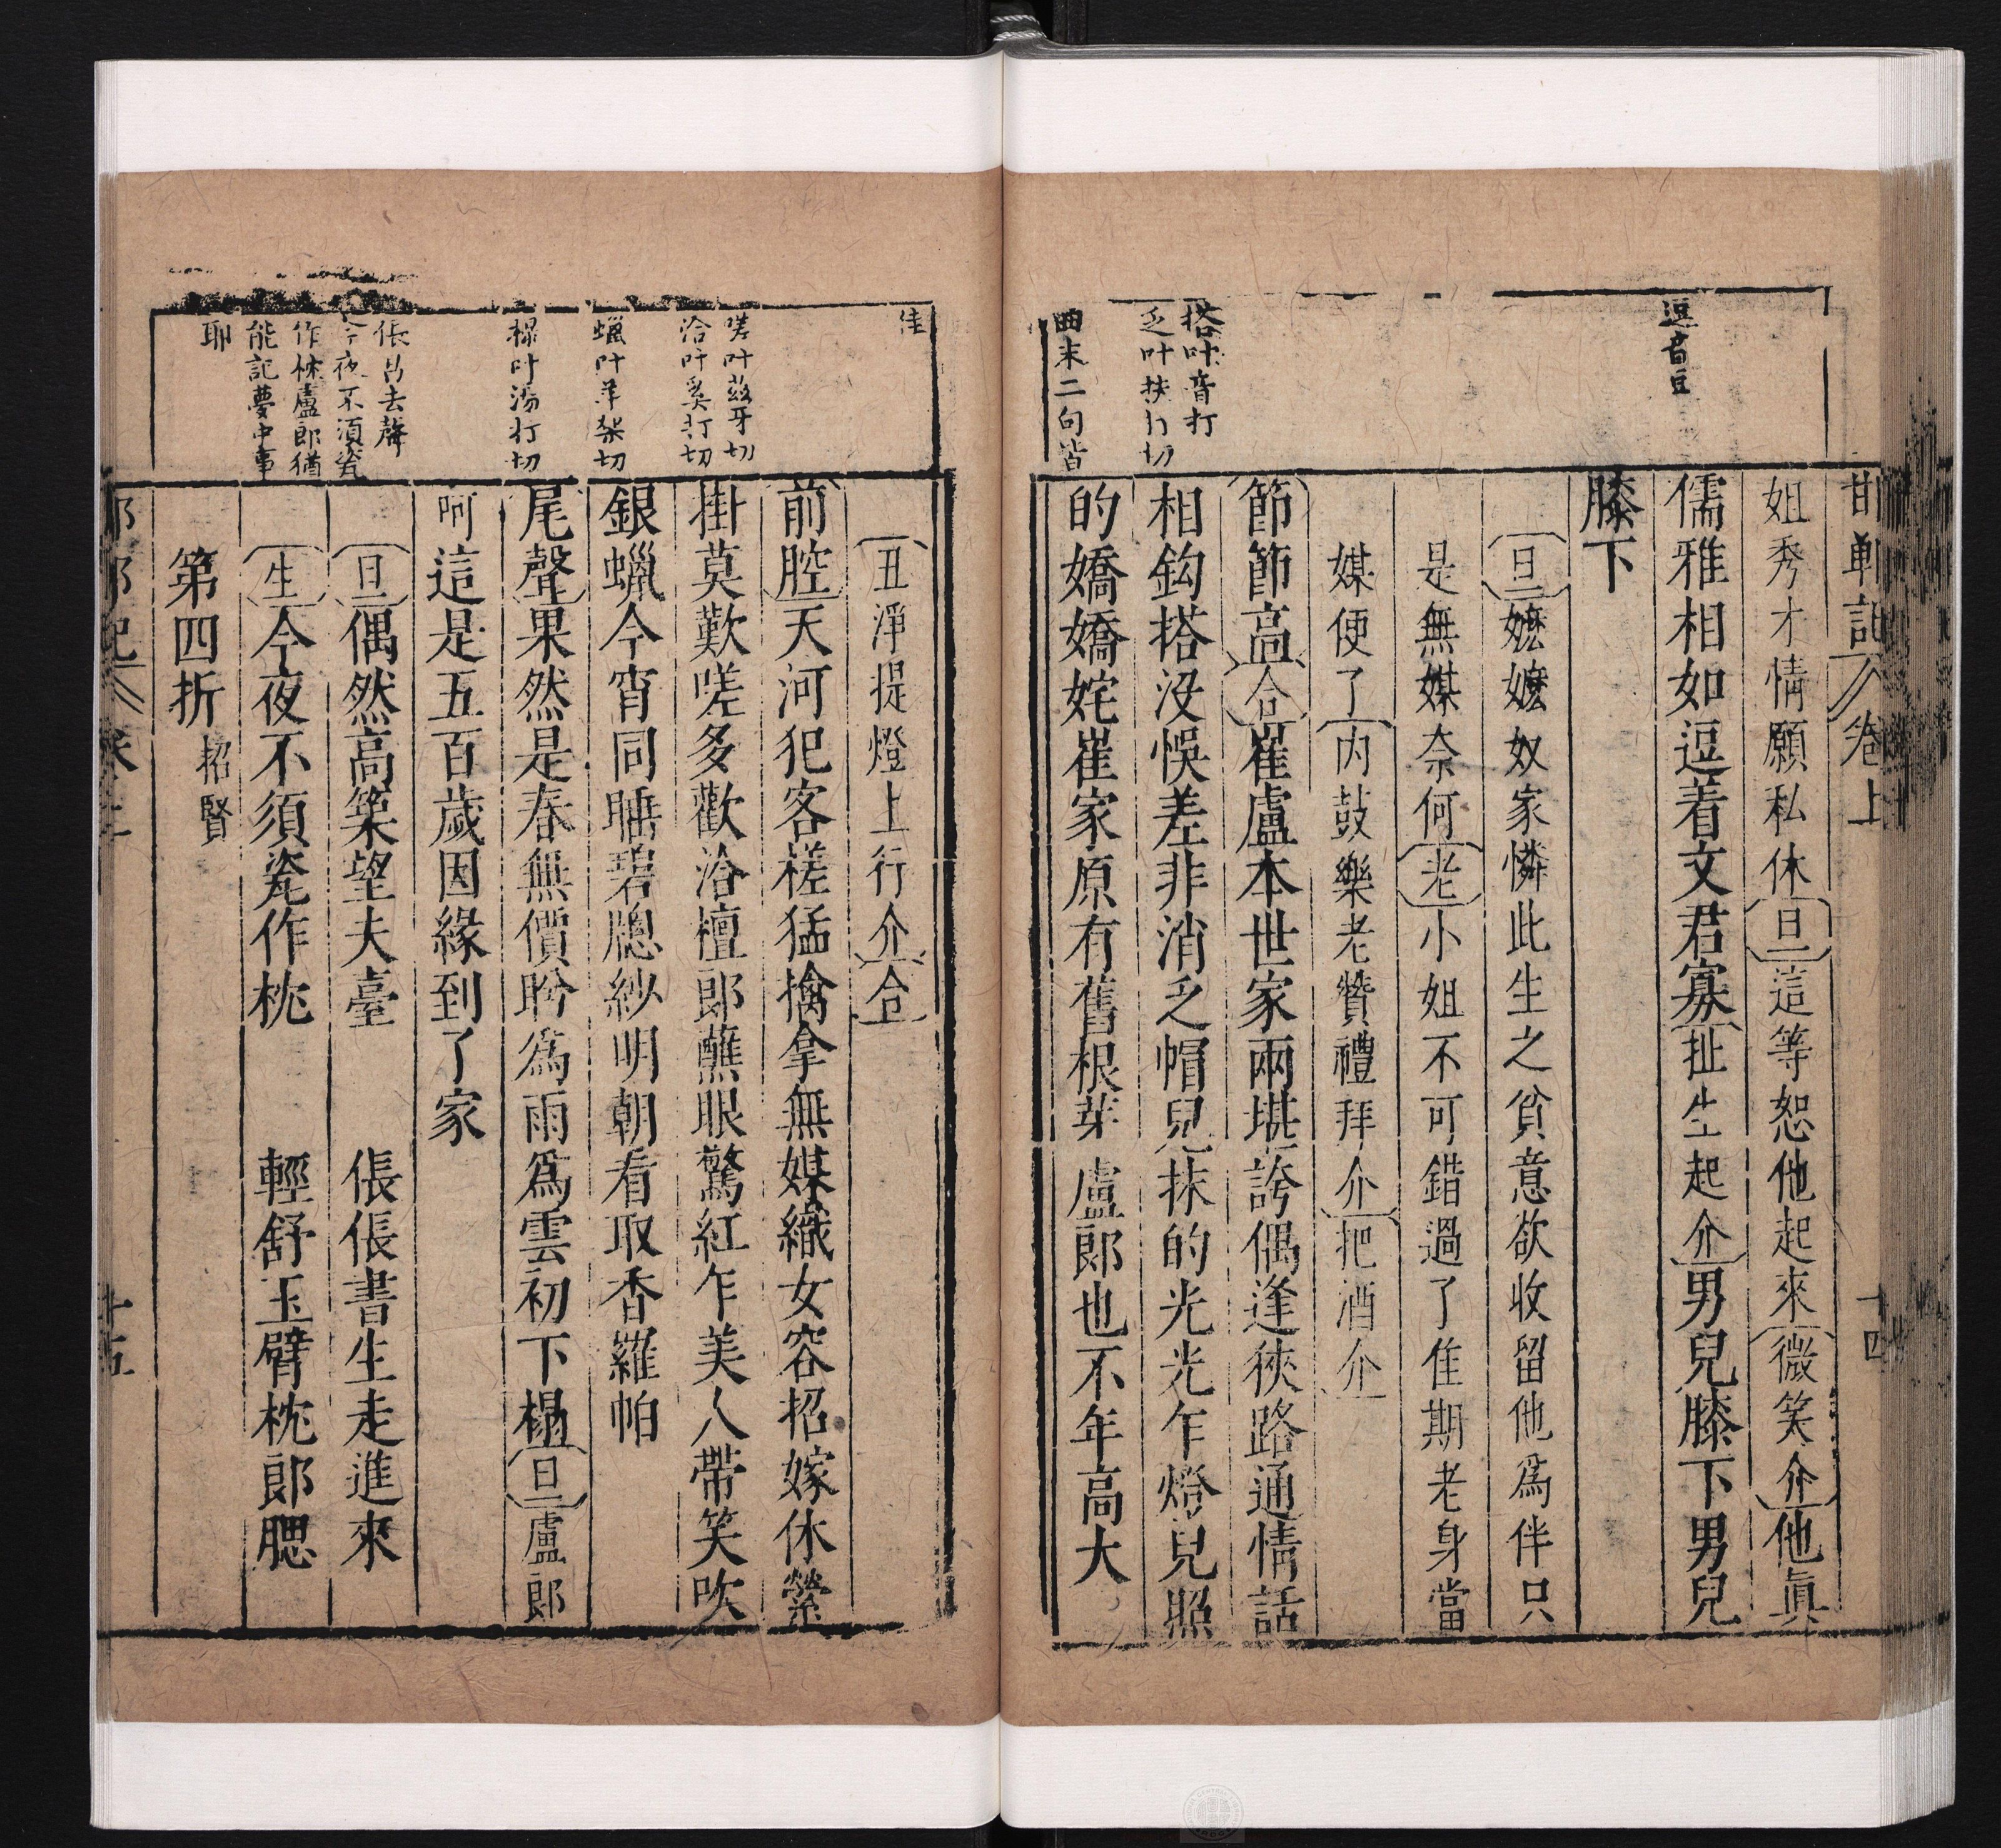 邯鄲記 卷上 十四
逗音豆
姐秀才情願私休旦這等恕他起來微笑介他眞
儒雅相如逗着文君寡扯生起介男兒膝下男兒
膝下
旦嬤嬤奴家憐此生之貧意欲收留他爲伴只
是無媒奈何老小姐不可錯過了佳期老身當
媒便了内鼓樂老贊禮拜介把酒介
搭叶音打
乏叶扶打切
曲末二句皆
節節高合崔盧本世家兩堪誇偶逢狹路通情話
相鈎搭没悞差非消乏帽兒抹的光光乍燈兒照
的嬌嬌姹崔家原有舊根芽盧郎也不年高大
佳
嗟叶茲牙切
洽叶奚打切
蠟叶羊架切
榻叶湯打切
倀呂去聲
今夜不須瓷
作枕盧郎猶
能記夢中事
耶
丑淨提燈上行介合
前腔天河犯客槎猛擒拿無媒織女容招嫁休縈
掛莫歎嗟多歡洽檀郎蘸眼驚紅乍美人帶笑吹
銀蠟今宵同睡碧牕紗明朝看取香羅帕
尾聲果然是春無價盻爲雨爲雲初下榻旦盧郎
呵這是五百歲因緣到了家
旦偶然高築望夫臺 倀倀書生走進來
生今夜不須瓷作枕 輕舒玉臂枕郎腮
第四折 招賢
邯鄲記 卷上 十五